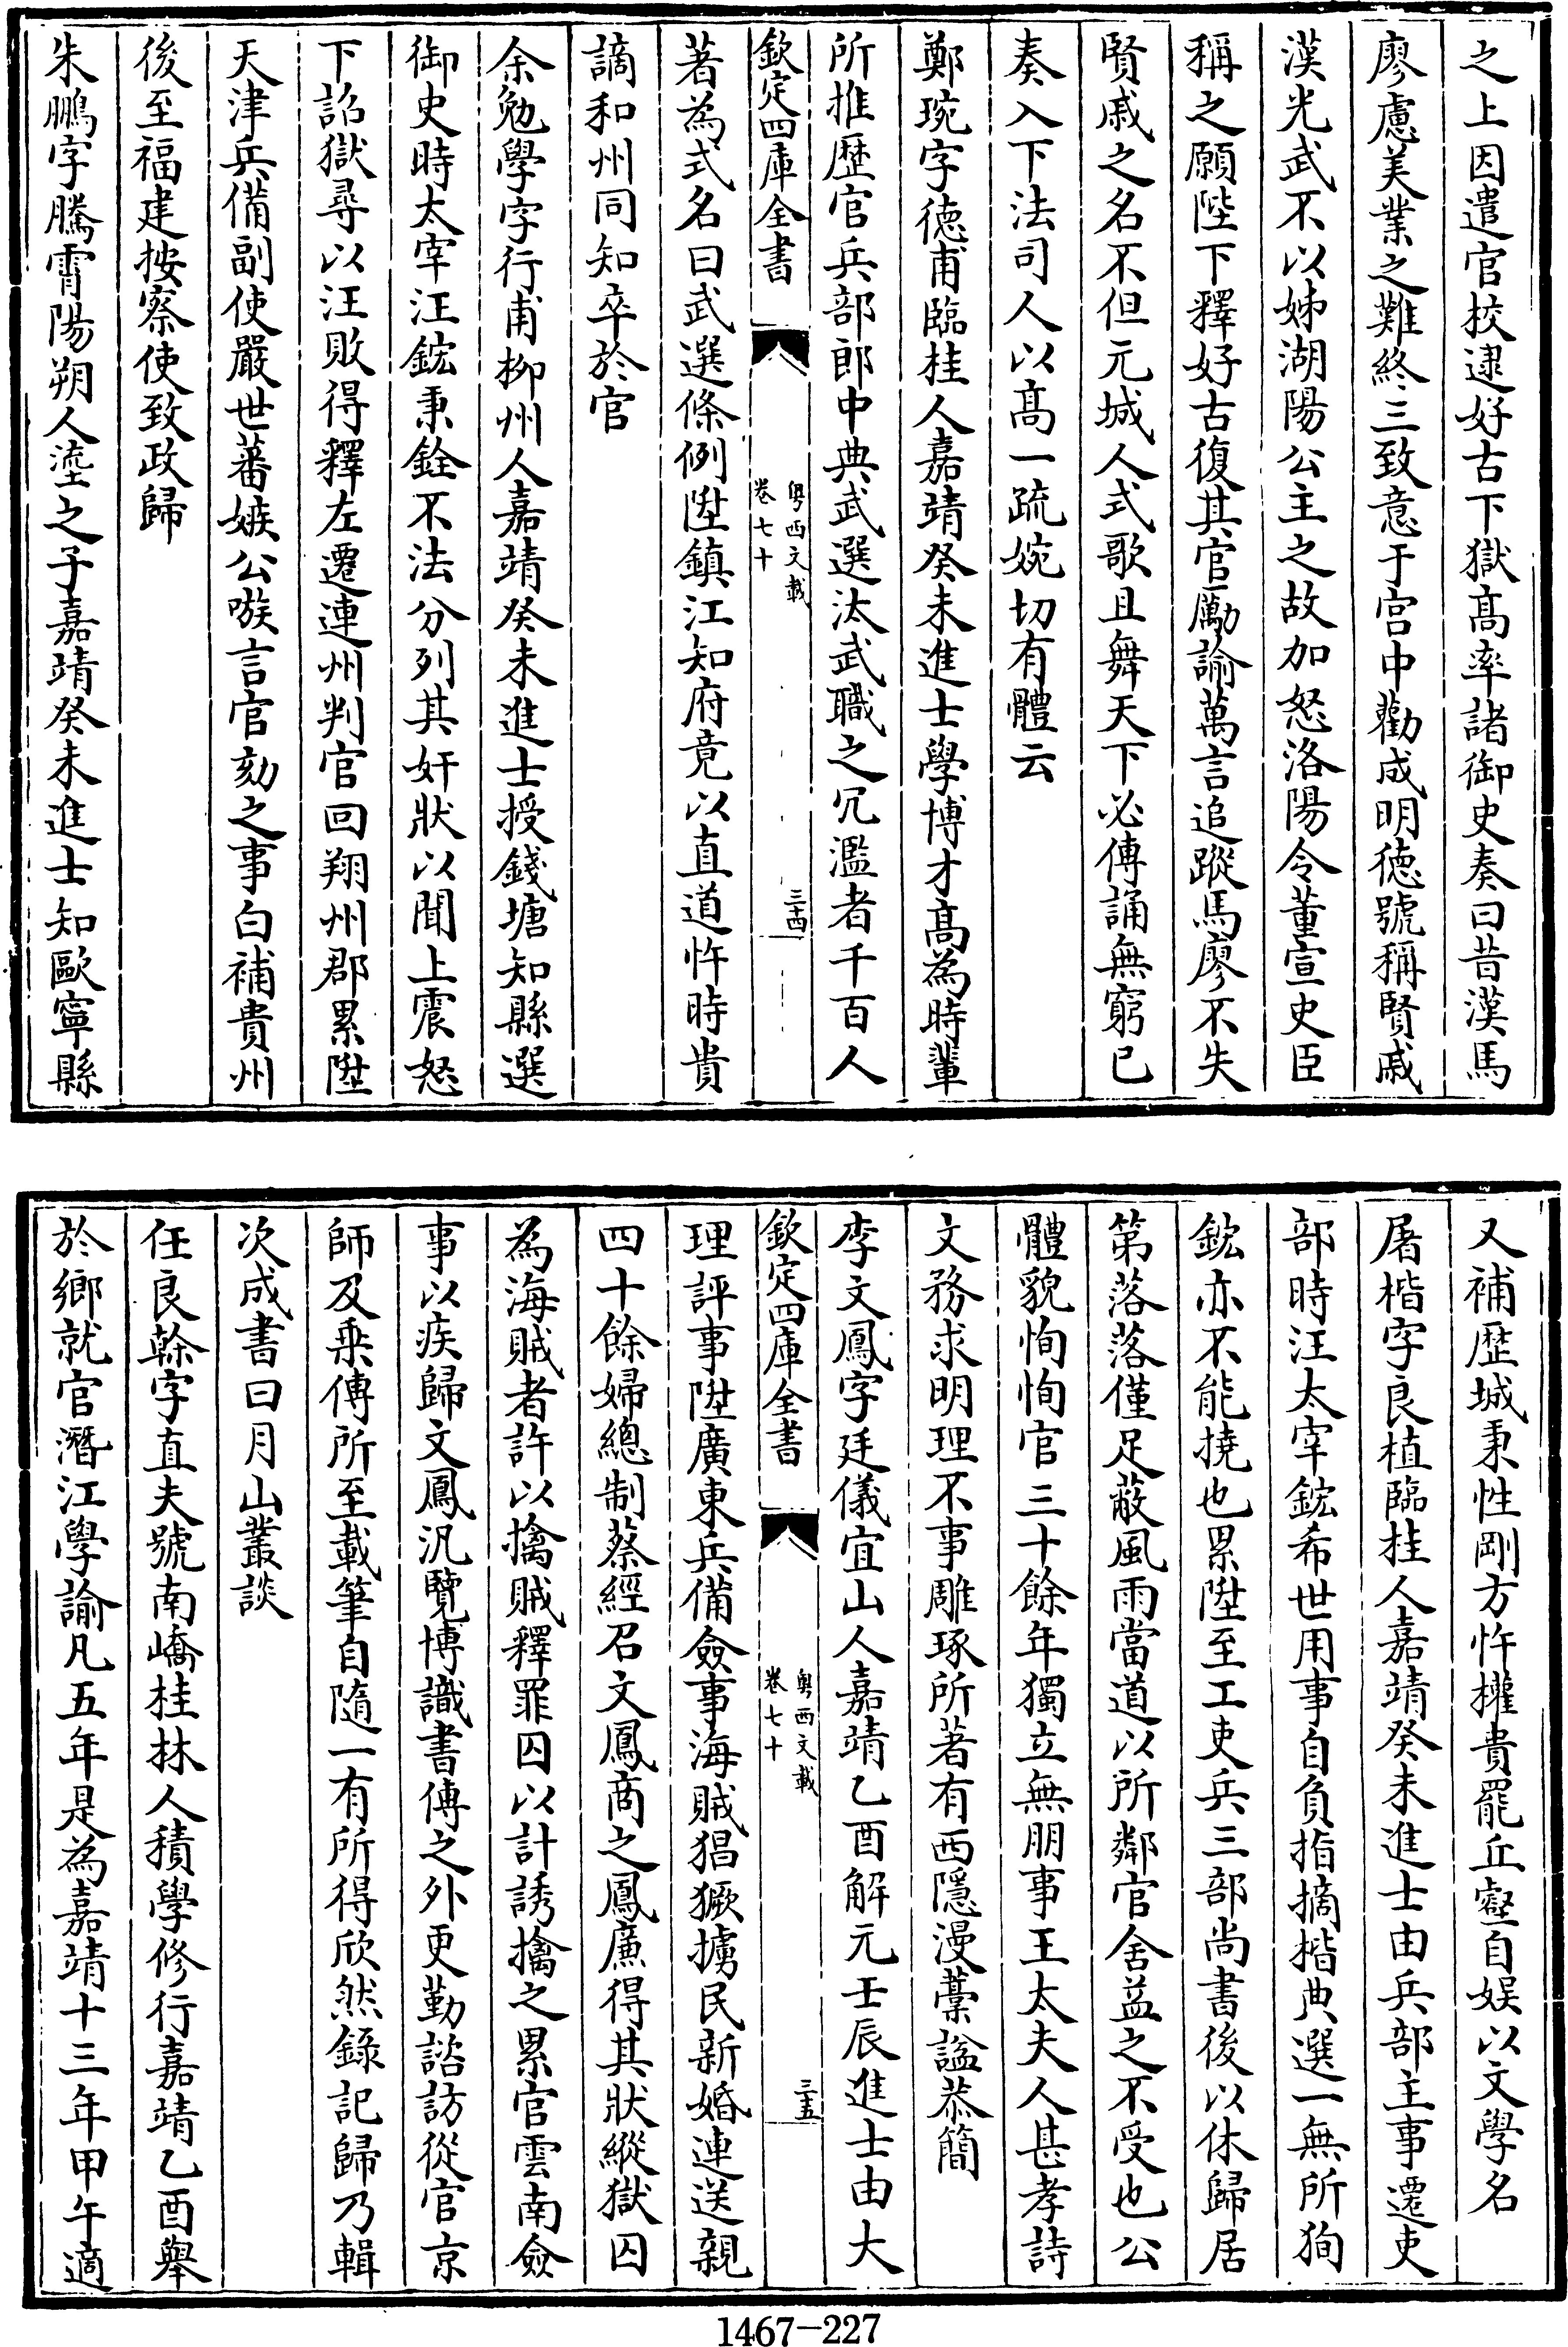 之上因遣官校逮好古下獄髙率諸御史奏曰昔漢馬
廖慮美業之難終三致意于宫中勸成明徳號稱賢戚
漢光武不以姊湖陽公主之故加怒洛陽令董宣史臣
稱之願陛下釋好古復其官勵諭萬言追蹤馬廖不失
賢戚之名不但元城人式歌且舞天下必傳誦無窮已
奏入下法司人以髙一疏婉切有體云
鄭琬字徳甫臨桂人嘉靖癸未進士學博才髙為時輩
所推歴官兵部郎中典武選汰武職之冗濫者千百人
欽定四庫全書
粤西文載
卷七十
三十四
著為式名曰武選條例陞鎮江知府竟以直道忤時貴
謫和州同知卒於官
余勉學字行甫柳州人嘉靖癸未進士授錢塘知縣選
御史時太宰汪鋐秉銓不法分列其奸狀以聞上震怒
下詔獄尋以汪敗得釋左遷連州判官回翔州郡累陞
天津兵備副使嚴世蕃嫉公嗾言官劾之事白補貴州
後至福建按察使致政歸
朱鵬字騰霄陽朔人塗之子嘉靖癸未進士知歐寧縣
又補歴城秉性剛方忤權貴罷丘壑自娱以文學名
屠楷字良植臨桂人嘉靖癸未進士由兵部主事遷吏
部時汪太宰鋐希世用事自負指摘楷典選一無所狥
鋐亦不能撓也累陞至工吏兵三部尚書後以休歸居
第落落僅足蔽風雨當道以所鄰官舍益之不受也公
體貌恂恂官三十餘年獨立無朋事王太夫人甚孝詩
文務求明理不事雕琢所著有西隱漫藳諡恭簡
李文鳳字廷儀宜山人嘉靖乙酉解元壬辰進士由大
欽定四庫全書
粤西文載
卷七十
三十五
理評事陞廣東兵備僉事海賊猖獗擄民新婚連送親
四十餘婦總制蔡經召文鳳商之鳳亷得其狀縱獄囚
為海賊者許以擒賊釋罪囚以計誘擒之累官雲南僉
事以疾歸文鳳汎覽博識書傳之外更勤諮訪從官京
師及乘傳所至載筆自隨一有所得欣然錄記歸乃輯
次成書曰月山叢談
任良榦字直夫號南嶠桂林人積學修行嘉靖乙酉舉
於鄉就官潛江學諭凡五年是為嘉靖十三年甲午適
1467-227